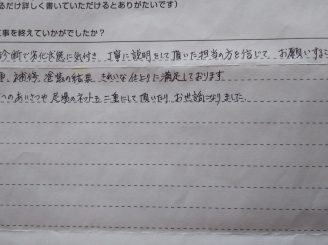 るだけ詳しく書いていただけるとありがたいです)
事を終えていかがでしたか?
診断で劣化状態に気付き、丁寧に説明をして頂いた担当の方を信じて、お願いする
、補修、塗装の結果、きれいな仕上りに満足しております。
へのあいさつや足場のネットを二重にして頂いたり、お世話になりました。